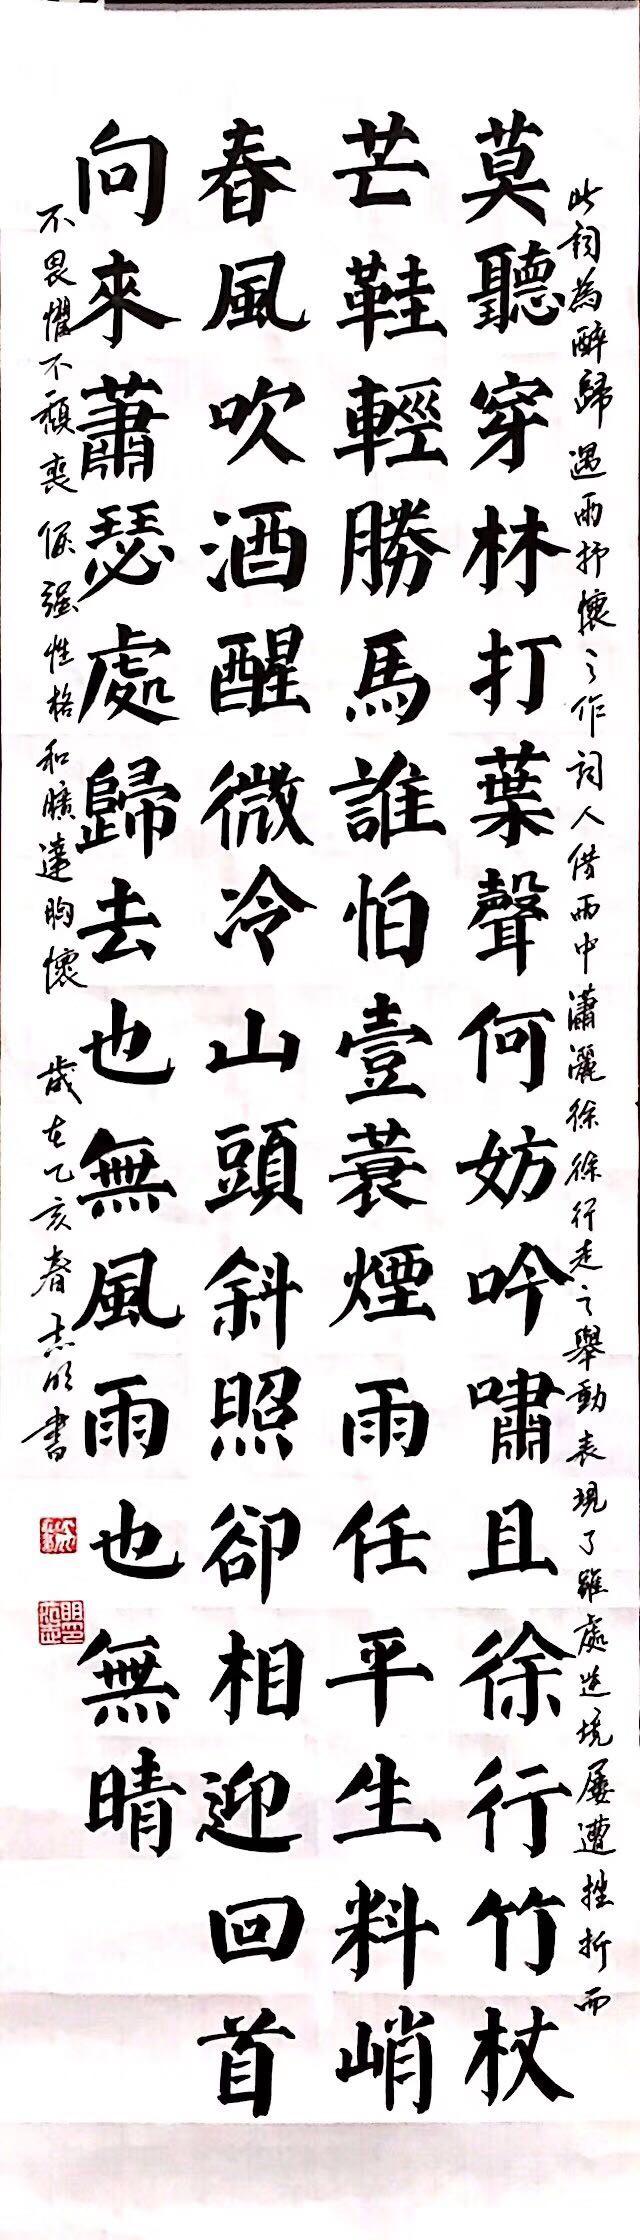 此詞為醉歸遇雨抒懷之作詞人借雨中瀟灑徐徐行走之舉動表現了雖處逆境屢遭挫折而
莫聽穿林打葉聲何妨吟嘯且徐行竹杖
芒鞋輕勝馬誰怕壹蓑煙雨任平生料峭
春風吹酒醒微冷山頭斜照卻相迎回首
向來蕭瑟處歸去也無風雨也無晴
不畏懼不頹喪倔強性格和曠達胸懷 歲在乙亥春志明書